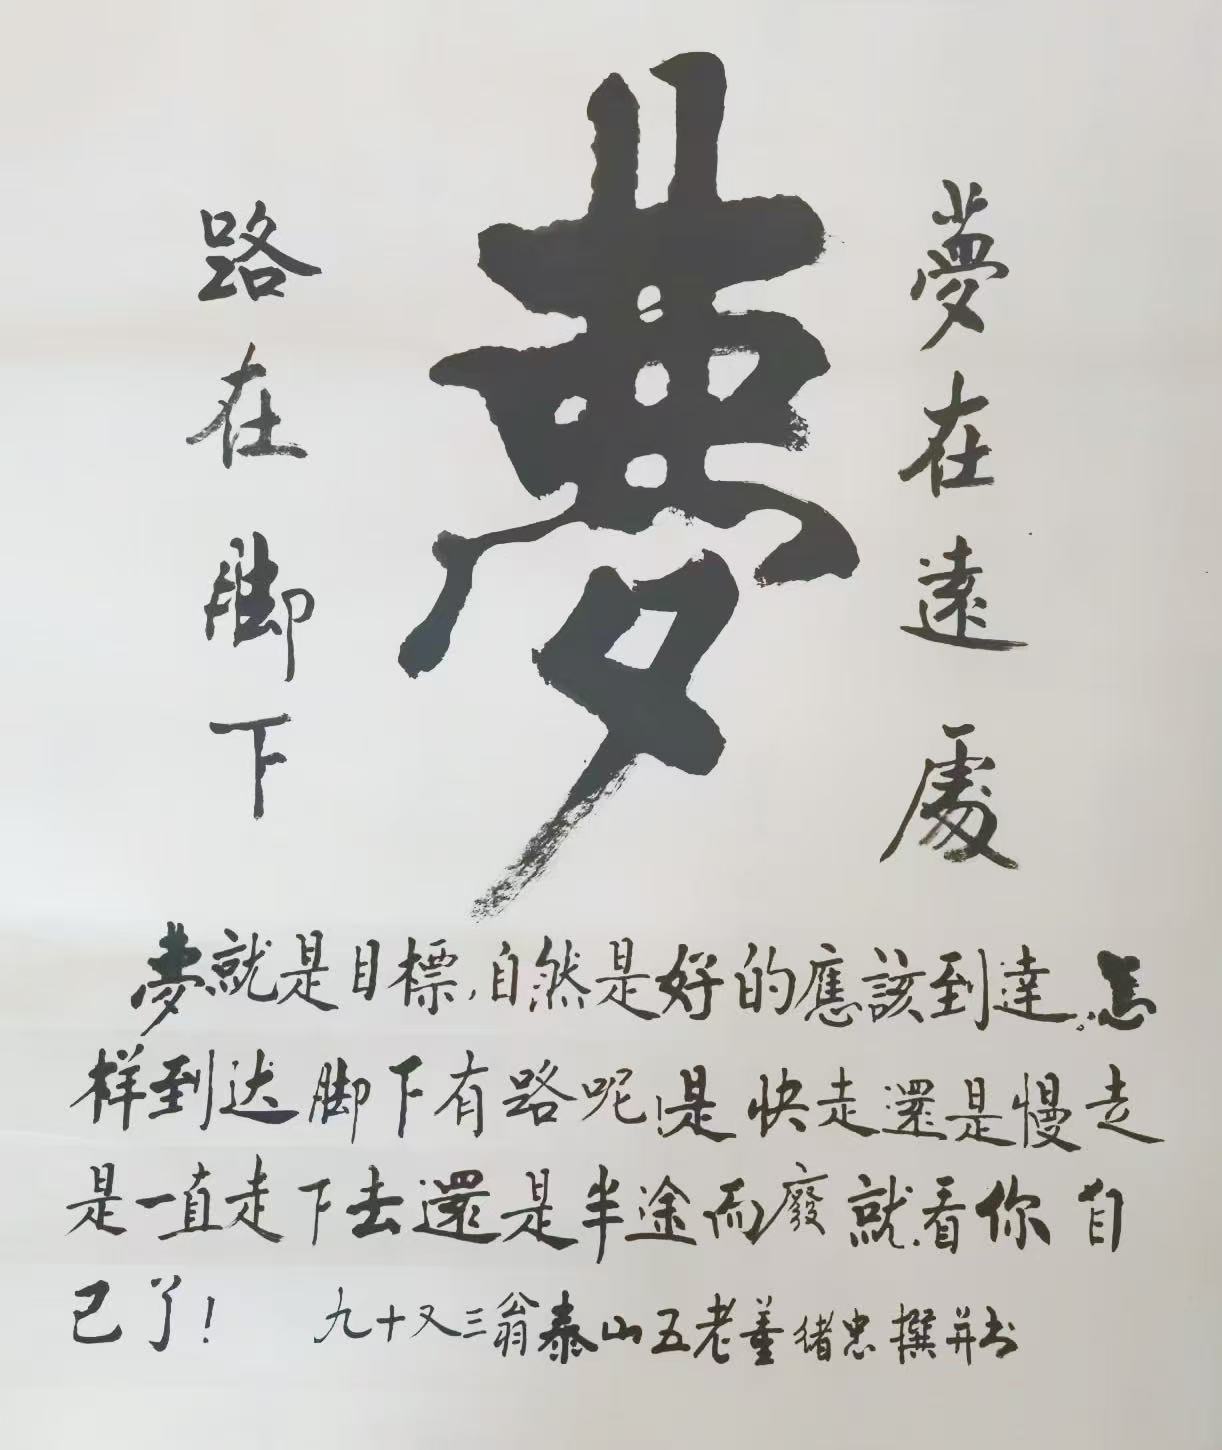 夢
夢在遠處
路在脚下
夢就是目標,自然是好的應該到達.怎
样到达脚下有路呢!是快走還是慢走
是一直走下去還是半途而廢就看你自
己了!
九十又三翁泰山五老董緒忠撰并书